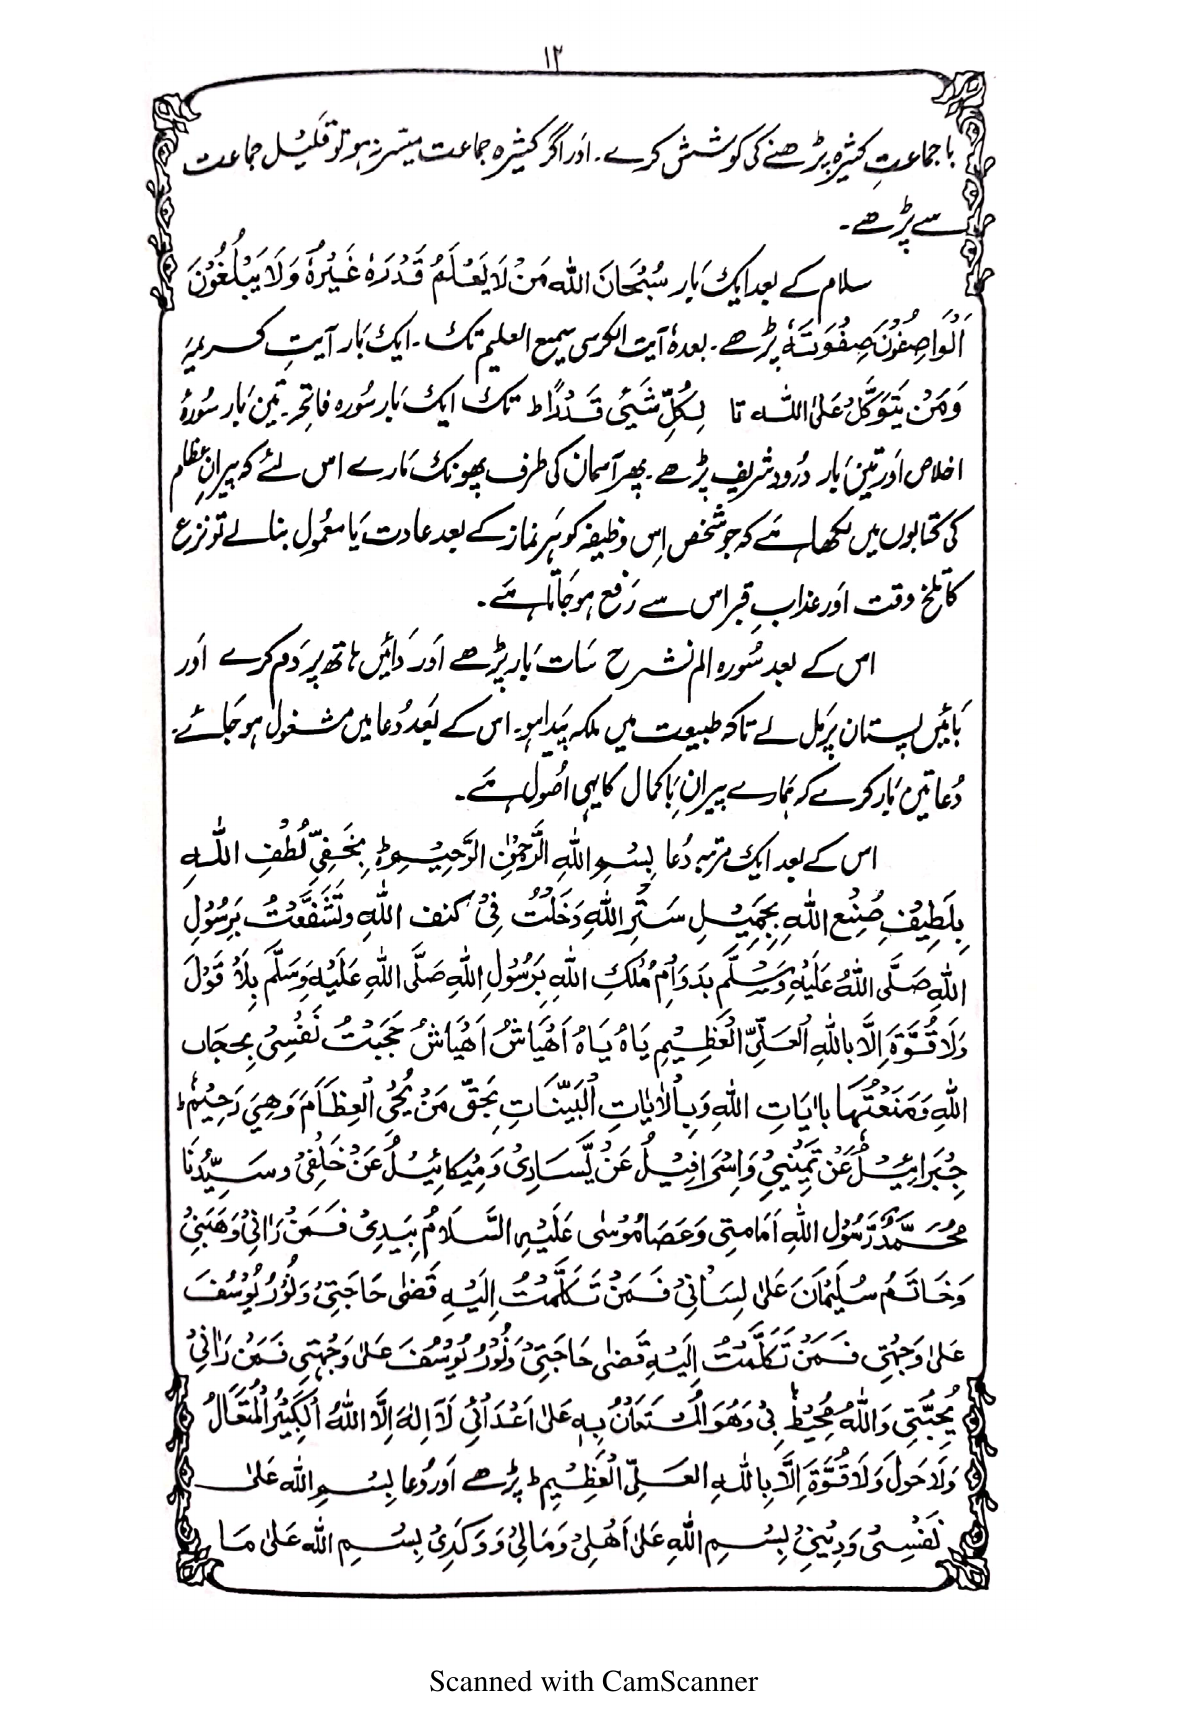 ۱۲
با جماعتِ کثیرہ پڑھنے کی کوشش کرے۔ اَور اگر کثیرہ جماعت میسّر نہ ہو تو قَلیل جماعت
سے پڑھے۔
سلام کے بعد ایک بَار سُبْحَانَ اللّٰہِ مَنْ لَا یَعْلَمُ قَدْرَہٗ غَیْرُہٗ وَلَا یَبْلُغُوْنَ
اَلْوَاصِفُوْنَ صِفُوَتَہٗ پڑھے۔ بعدہٗ آیت الکرسی سمیع العلیم تک۔ ایک بَار آیتِ کریمہ
وَمَنْ یَتَوَکَّلْ عَلَی اللہ تا لِکُلِّ شَیْئٍ قَدْرًا ط تک ایک بَار سُورہ فاتحہ۔ تین بَار سُورۂ
اخلاص اَور تین بَار درُود شریف پڑھے۔ پھر آسمان کی طرف پھونک مَارے اس لئے کہ پیرانِ عظام
کی کتابوں میں لکھا ہے کہ جو شخص اِس وظیفہ کو ہَر نماز کے بعد عادت یَا معمُول بنالے تو نزع
کا تلخ وقت اَور عذابِ قبر اس سے رَفع ہو جَاتا ہَے۔
اس کے بعد سُورہ الم نشرح سَات بَار پڑھے اَور دَائیں ہاتھ پر دَم کرے اَور
بَائیں پستان پر مَل لے تاکہ طبیعت میں ملکہ پَیدا ہو۔ اس کے بَعد دُعا میں مشغُول ہو جَائے۔
دُعا تین بَار کرے کہ ہمَارے پیرانِ بَاکمال کا یہی اصُول ہَے۔
اس کے بعد ایک مرتبہ دُعا بِسْمِ اللّٰہِ الرَّحْمٰنِ الرَّحِیْمِ ط بِخَفِیِّ لُطْفِ اللّٰہِ
بِلَطِیْفِ صُنْعِ اللّٰہِ بِجَمِیْلِ سَتْرِ اللّٰہِ دَخَلْتُ فِیْ کنف اللّٰہِ وَتَشَفَّعْتُ بِرَسُوْلِ
اللّٰہِ صَلَّی اللّٰہُ عَلَیْہِ وَسَلَّم بِدَوَامِ مُلْکِ اللّٰہِ بِرَسُوْلِ اللّٰہِ صَلَّی اللّٰہِ عَلَیْہِ وَسَلَّمَ بِلَا قَوْلَ
وَلَا قُوَّۃَ اِلَّا بِاللّٰہِ الْعَلِیِّ الْعَظِیْمِ یَاہُ یَاہُ اَھْیَاشُ اَھْیَاشُ حَجَبْتُ نَفْسِیْ بِحِجَاب
اللّٰہِ وَمَنَعْتُھَا بِاٰیَاتِ اللّٰہِ وَبِالْاٰیٰاتِ الْبَیِّنَاتِ بِحَقِّ مَنْ یُّحْیِ الْعِظَامَ وَھِیَ رَحِیْمٌ ط
جِبْرَائِیْلُ عَنْ یَّمِیْنِیْ وَاِسْرَافِیْلُ عَنْ یَّسَارِیْ وَمِیْکَائِیْلُ عَنْ خَلْفِیْ و سَیِّدُنَا
مُحَمَّدٌ رَّسُوْل اللّٰہِ اَمَامتِی وَعَصَا مُوْسٰی عَلَیْہِ السَّلَامُ بِیَدِیْ فَمَنْ رَاٰنِیْ وَھَبَنِیْ
وَخَاتَمُ سُلَیْمَانَ عَلٰی لِسَانِیْ فَمَنْ تَکَلَّمْتُ اِلَیْہِ قَضٰی حَاجَتِیْ وَنُوْرُ یُوْسُفَ
عَلٰی وَجْھِی فَمَنْ تَکَلَّمْتُ اِلَیْہِ قَضٰی حَاجَتِیْ وَنُوْرُ یُوْسُفَ عَلٰی وَجْھِی فَمَنْ رَاٰنِیْ
یُحِبُّنِی وَاللّٰہُ مُحِیْطٌ بِیْ وَھُوَ الْمُسْتَعَانُ بِہٖ عَلٰی اَعْدَائِی لَا اِلٰہَ اِلَّا اللّٰہُ الْکَبِیْرُ الْمُتَعَالُ
وَلَا حَوْلَ وَلَا قُوَّۃَ اِلَّا بِاللّٰہِ الْعَلِیِّ الْعَظِیْمِ ط پڑھے اَور دُعا بِسْمِ اللّٰہِ عَلٰی
نَفْسِیْ وَدِیْنِیْ بِسْمِ اللّٰہِ عَلٰی اَھْلِیْ وَمَالِیْ وَوَلَدِیْ بِسْمِ اللّٰہِ عَلٰی مَا
Scanned with CamScanner